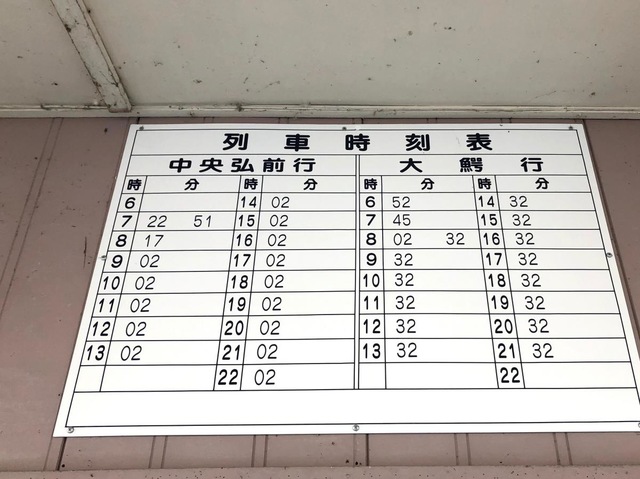 列車時刻表
中央弘前行 大鰐行
時 分 時 分 時 分 時 分
6 14 02 6 52 14 32
7 22 51 15 02 7 45 15 32
8 17 16 02 8 02 32 16 32
9 02 17 02 9 32 17 32
10 02 18 02 10 32 18 32
11 02 19 02 11 32 19 32
12 02 20 02 12 32 20 32
13 02 21 02 13 32 21 32
22 02 22